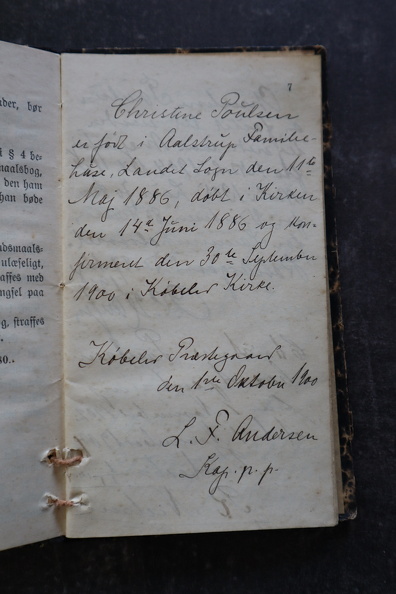 der, bør
i § 4 be-
maalsbog,
den ham
han bøde
dsmaals-
ulæseligt,
affes med
ngsel paa
g, straffes
7
Christine Poulsen
er født i Aalstrup Familie-
huse, Landet Sogn den 11te
Maj 1886, døbt i Kirken
den 14de Juni 1886 og Kon-
firmeret den 30te September
1900 i Købelev Kirke.
Købelev Præstegaard
den 1ste Oktober 1900
L. F. Andersen
Kap. p. p.